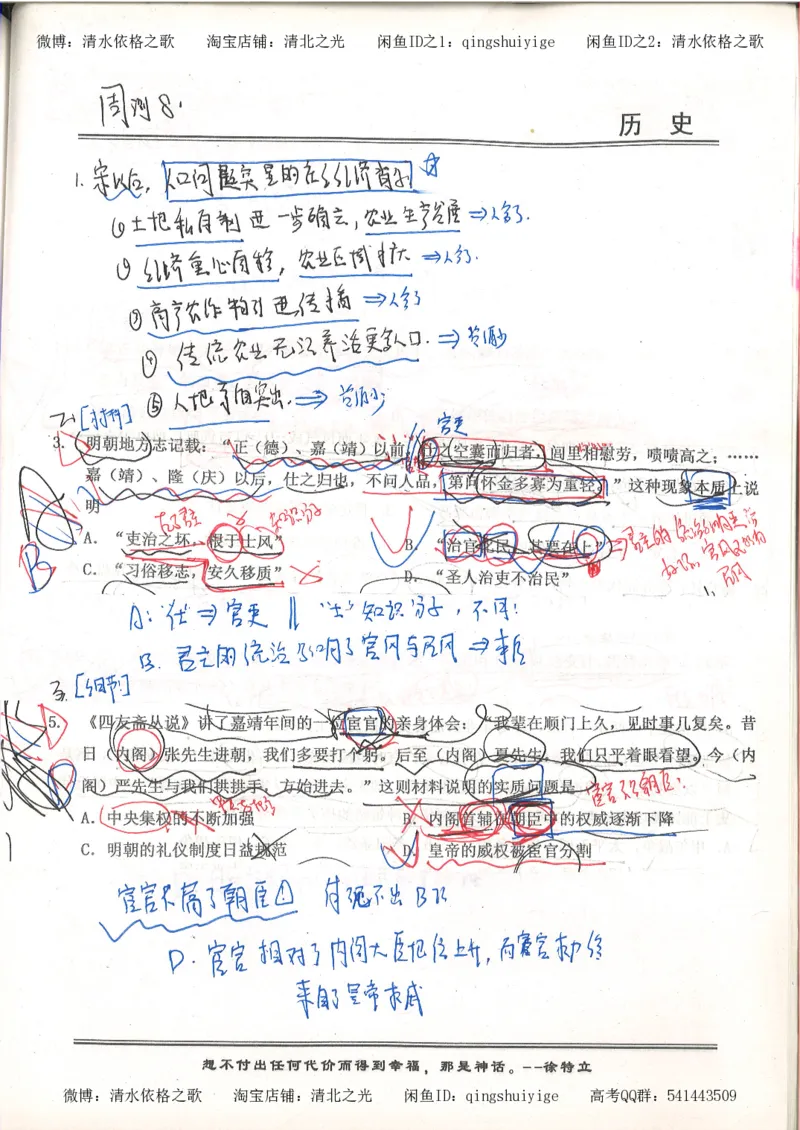 微博：清水依格之歌 淘宝店铺：清北之光 闲鱼ID之1：qingshuiyige 闲鱼ID之2：清水依格之歌
周测8.
历 史
1. 宋以后，人口问题突显的在经济背后
①土地私有制进一步确立，农业生产发展⇒人多了.
②经济重心南移，农业区域扩大⇒人多了.
③高产农作物引进传播⇒人多了
④传统农业无法养活更多人口.⇒资源少
⑤人地矛盾突出.⇒资源少
2.[材料]
官吏
3. 明朝地方志记载：“正（德）、嘉（靖）以前，仕之空囊而归者，闾里相慰劳，啧啧高之；……
嘉（靖）、隆（庆）以后，仕之归也，不问人品，第问怀金多寡为重轻。”这种现象本质上说
明
知识分子
A．“吏治之坏，根于士风” B．“治官化民，其要在上”
C．“习俗移志，安久移质” D．“圣人治吏不治民”
A：“仕⇒官吏 ‖ “士”知识分子，不同！
B. 君主的统治影响了官风与民风⇒本质
3.[细节]
5. 《四友斋丛说》讲了嘉靖年间的一位宦官的亲身体会：“我辈在顺门上久，见时事几复矣。昔
日（内阁）张先生进朝，我们多要打个躬。后至（内阁）夏先生，我们只平着眼看望。今（内
阁）严先生与我们拱拱手，方始进去。”这则材料说明的实质问题是
A．中央集权的不断加强 B．内阁首辅在朝臣中的权威逐渐下降
C．明朝的礼仪制度日益规范 D．皇帝的威权被宦官分割
宦官不属于朝臣① 体现不出B
D．宦官相对于内阁大臣地位上升，而宦官权力
来自于皇帝
想不付出任何代价而得到幸福，那是神话。--徐特立
微博：清水依格之歌 淘宝店铺：清北之光 闲鱼ID：qingshuiyige 高考QQ群：541443509